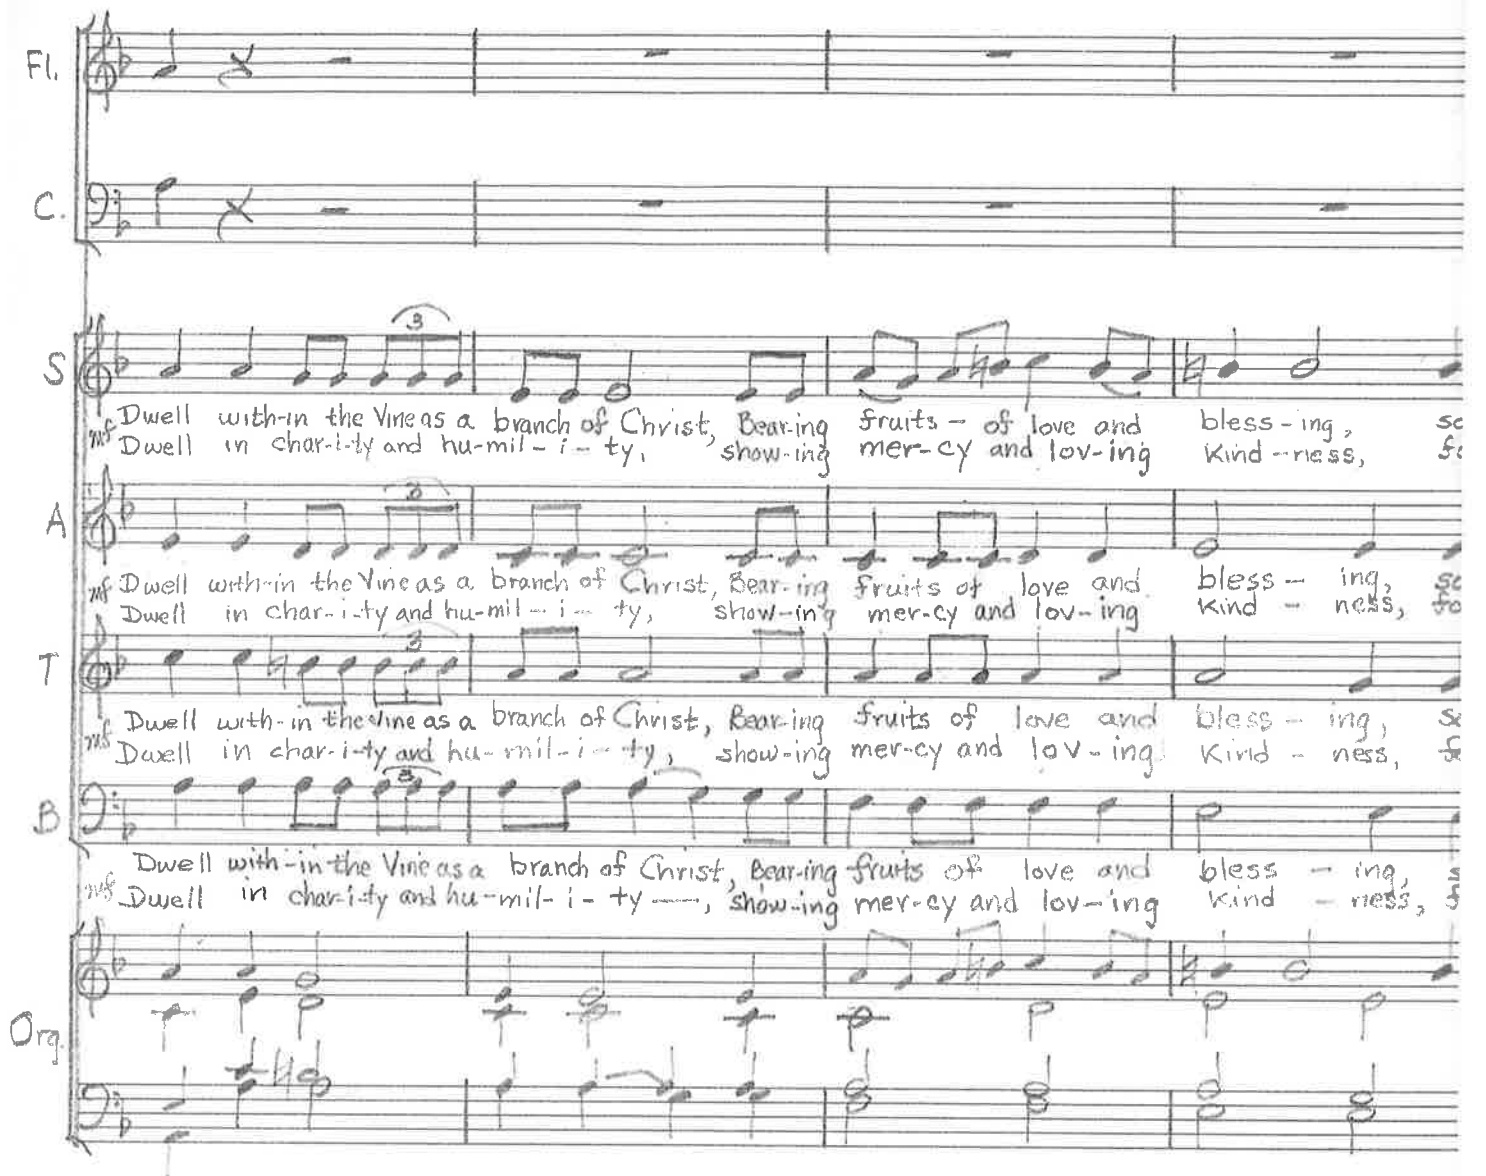 Fl.
C.
3
S
mf Dwell with-in the Vine as a branch of Christ, Bear-ing fruits - of love and bless-ing,
Dwell in char-i-ty and hu-mil-i-ty, show-ing mer-cy and lov-ing kind-ness,
3
A
mf Dwell with-in the Vine as a branch of Christ, Bear-ing fruits of love and bless - ing,
Dwell in char-i-ty and hu-mil-i-ty, show-ing mer-cy and lov-ing kind - ness,
3
T
mf Dwell with-in the Vine as a branch of Christ, Bear-ing fruits of love and bless - ing,
Dwell in char-i-ty and hu-mil-i-ty, show-ing mer-cy and lov-ing kind - ness,
3
B
mf Dwell with-in the Vine as a branch of Christ, Bear-ing fruits of love and bless - ing,
Dwell in char-i-ty and hu-mil-i-ty —, show-ing mer-cy and lov-ing kind - ness,
Org.